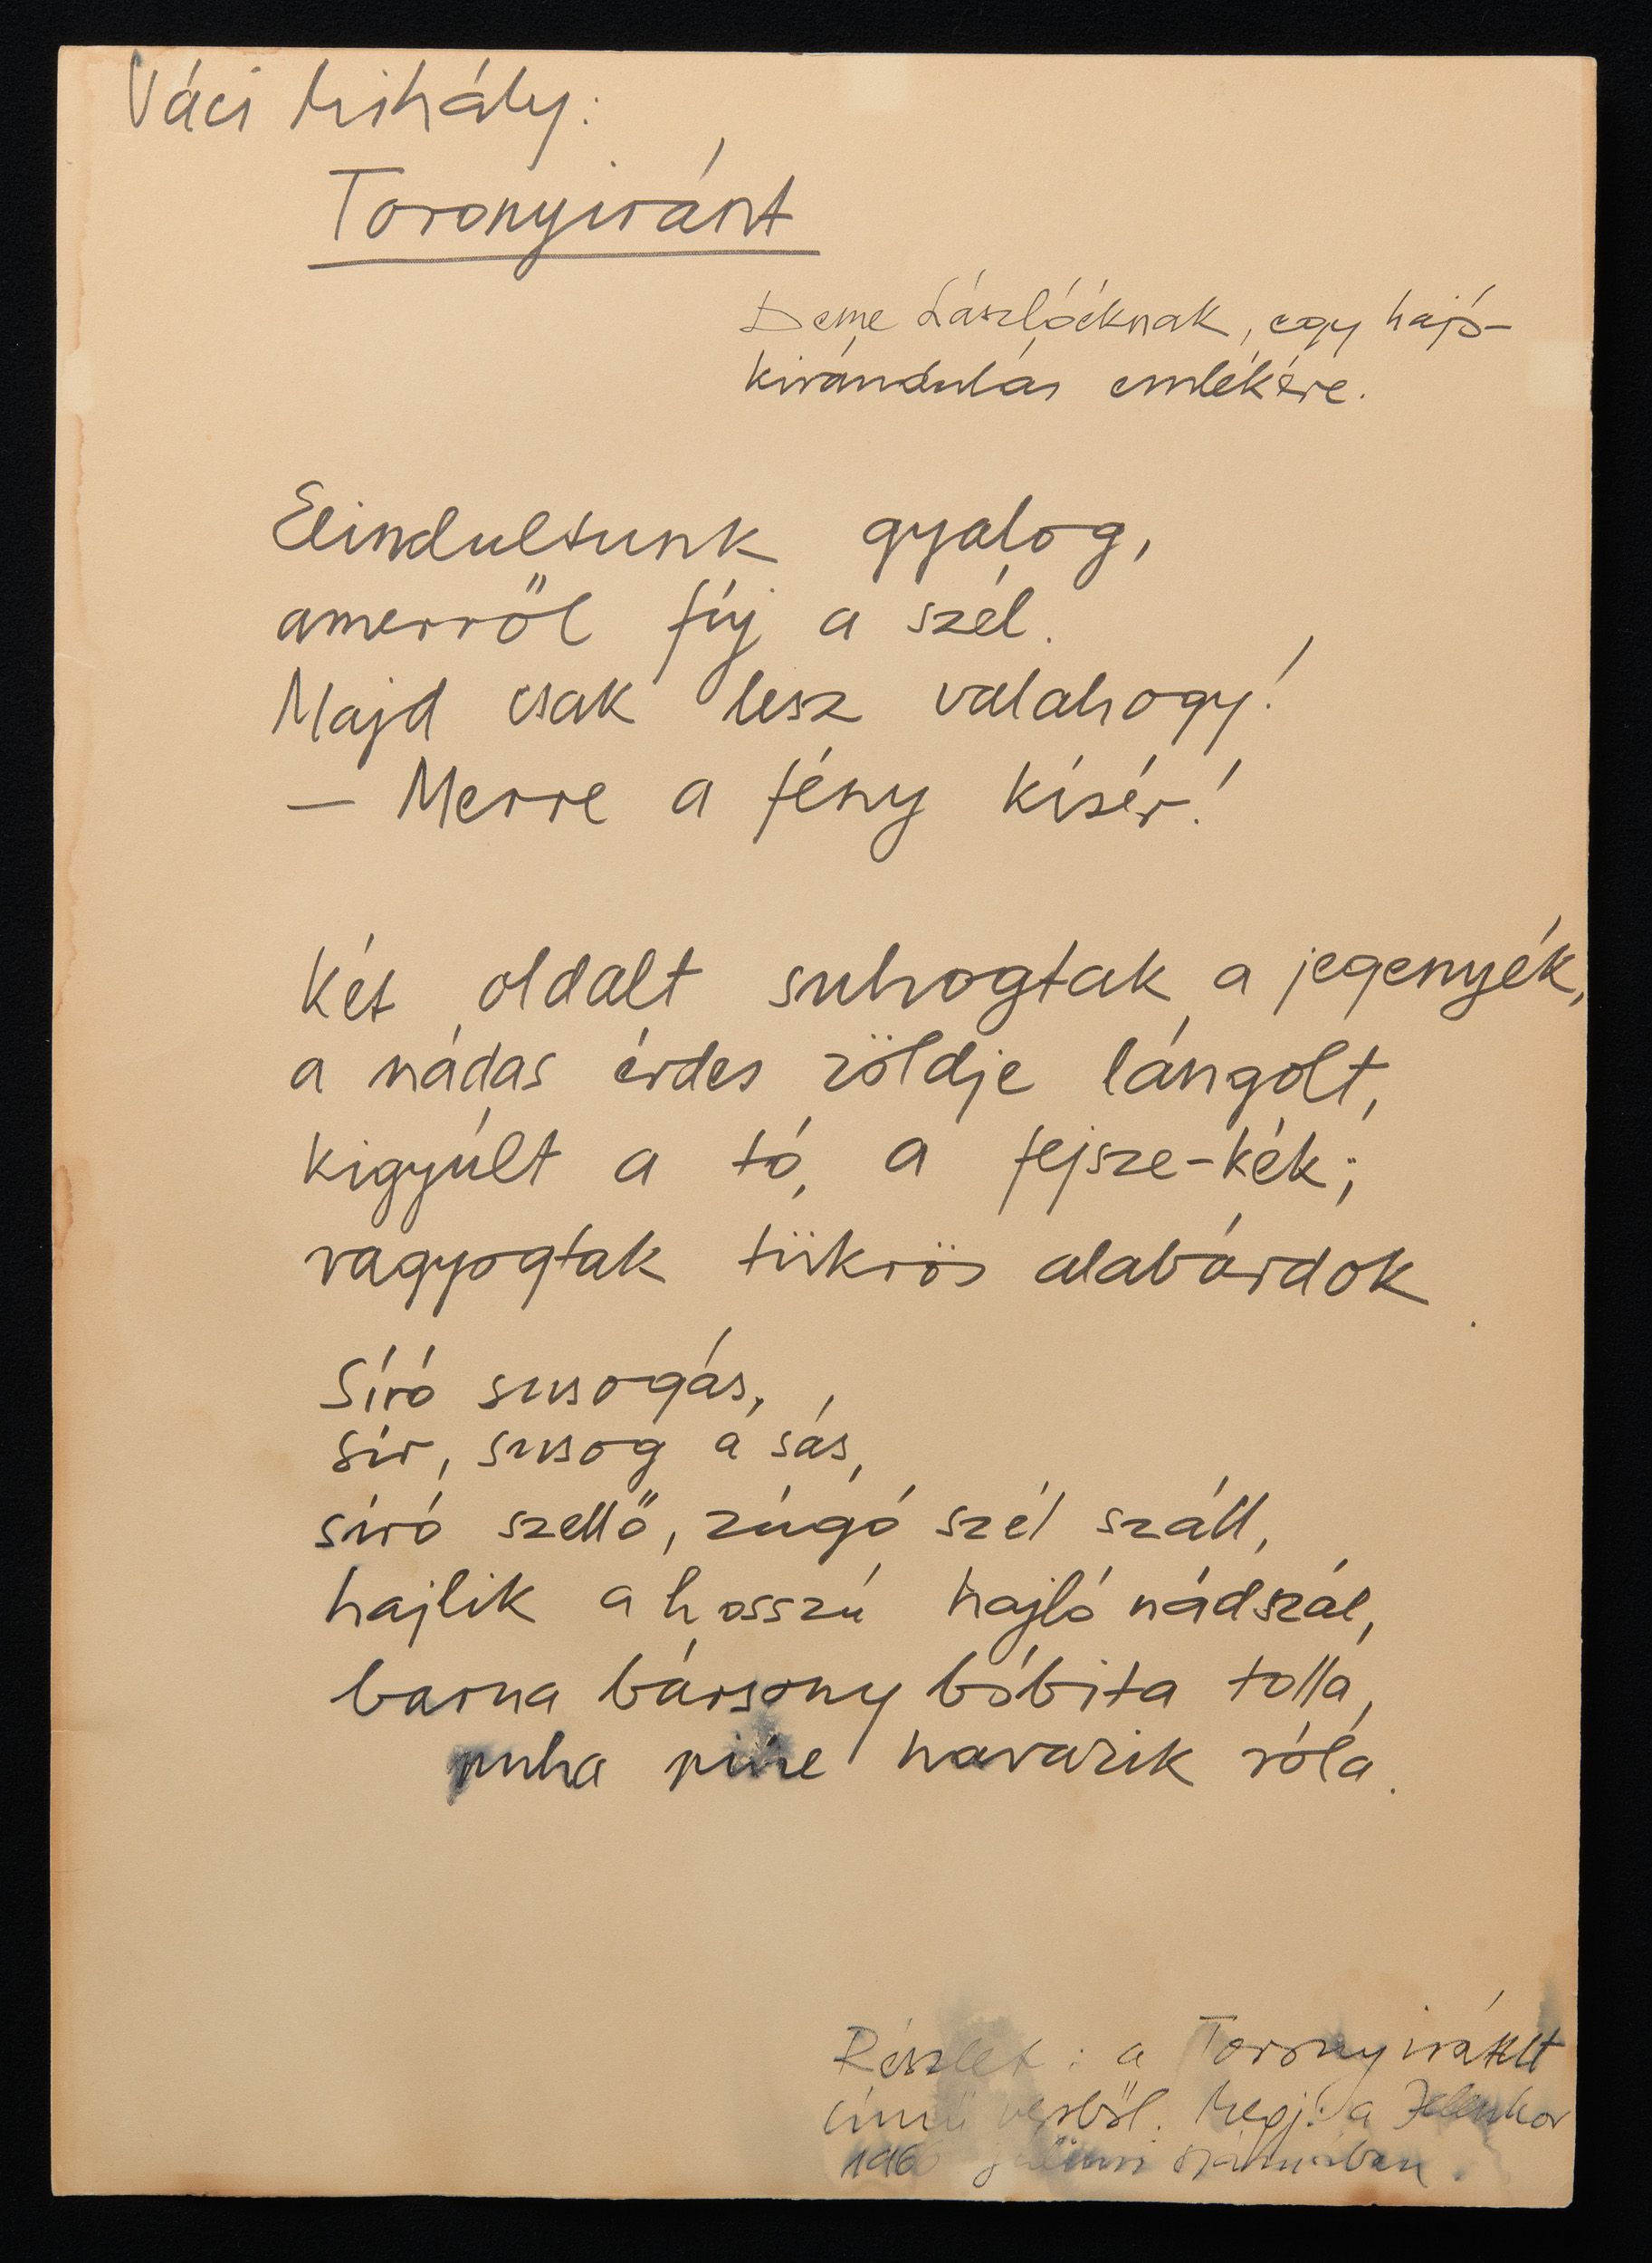 Váci Mihály:
Toronyiránt
Deme Lászlóéknak, egy hajó-
kirándulás emlékére.
Elindultunk gyalog,
amerről fúj a szél.
Majd csak lesz valahogy!
— Merre a fény kísér!
Két oldalt suhogtak a jegenyék,
a nádas érdes zöldje lángolt,
kigyúlt a tó, a fejsze-kék;
vagyogtak tükrös alabárdok.
Síró susogás,
sír, susog a sás,
síró szellő, zúgó szél száll,
hajlik a hosszú hajló nádszál,
barna bársony bóbita tolla,
puha pihe havazik róla.
Részlet: a Toronyiránt
című versből. Megj: a Jelenkor
számában.